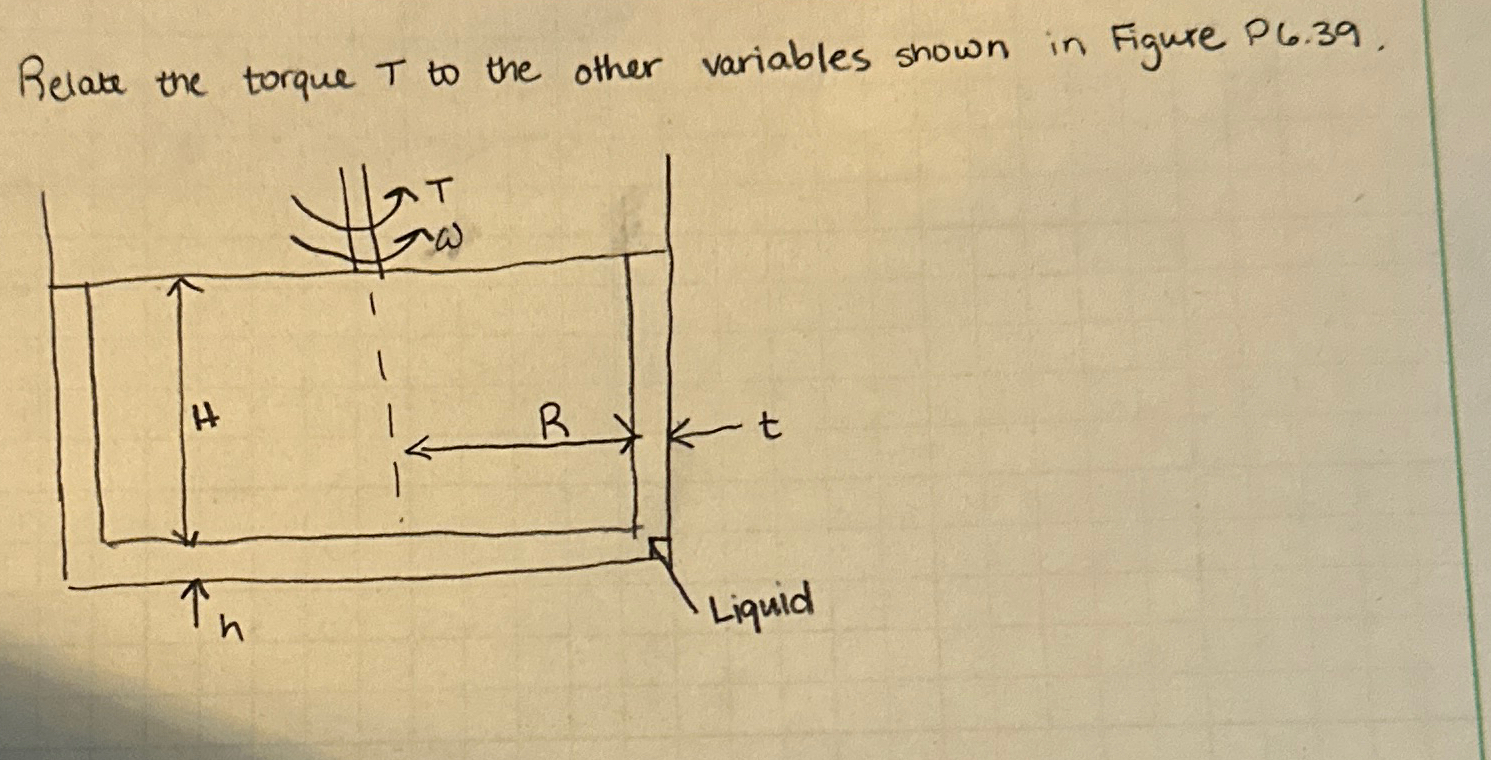 Relate the torque T to the other variables shown in Figure P6.39.
T
ω
H
R
t
h
Liquid